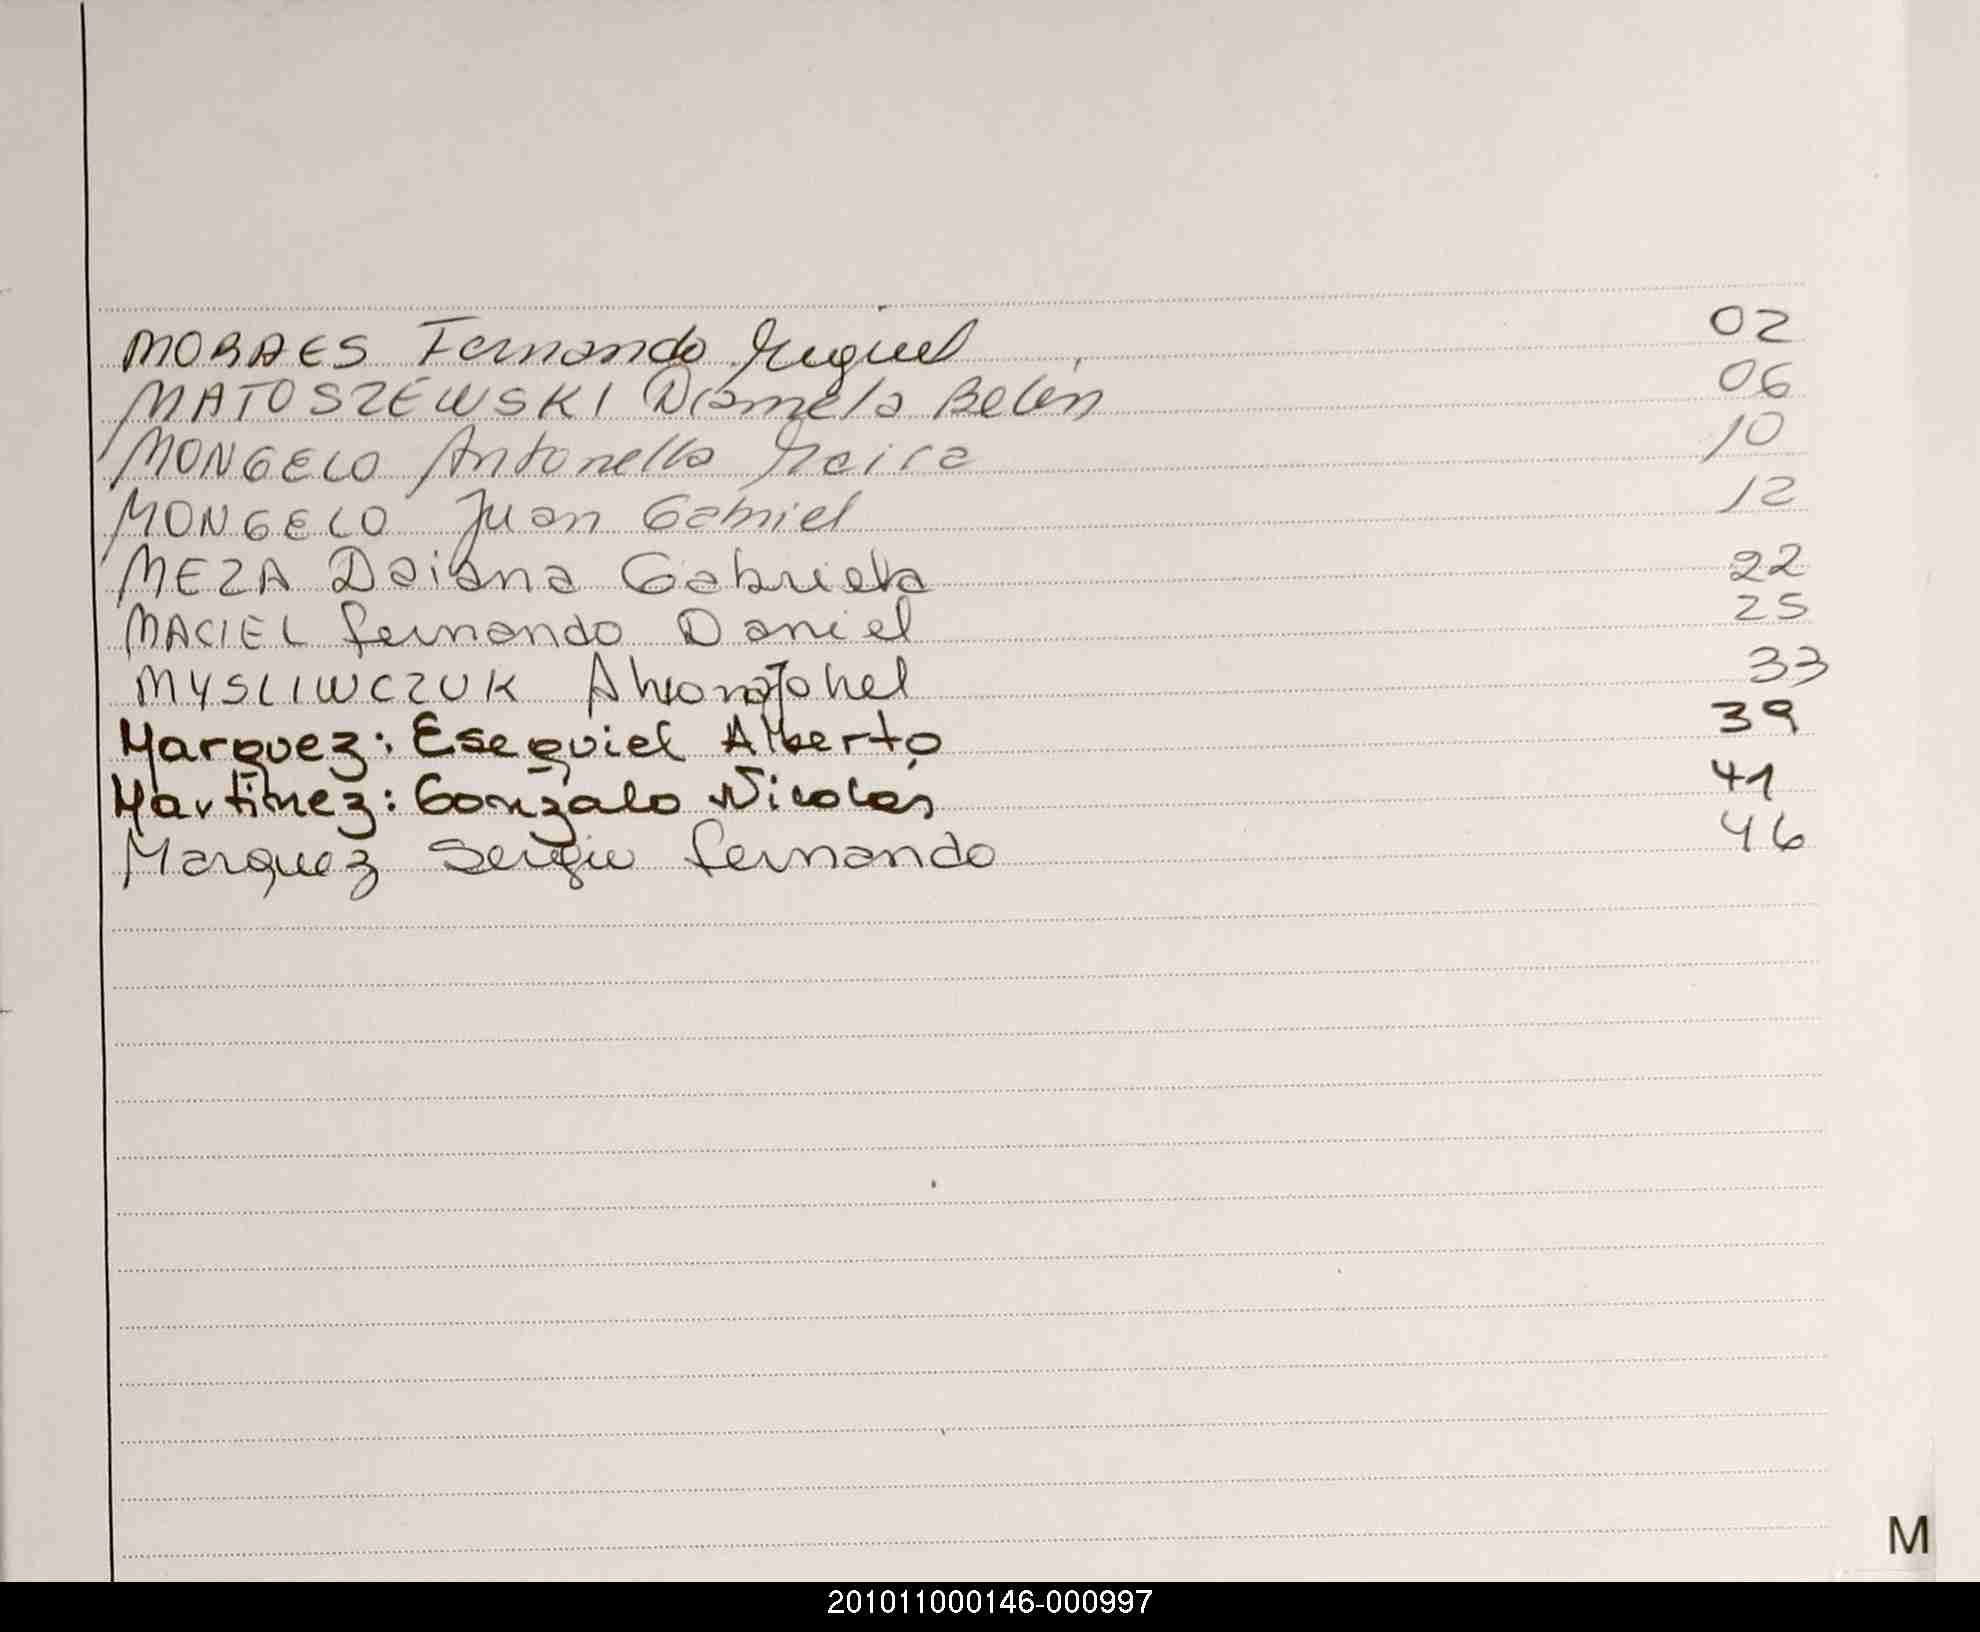 MORAES Fernando Miguel 02
MATOSZEWSKI Diamela Belén 06
MONGELO Antonella Maira 10
MONGELO Juan Gabriel 12
MEZA Daiana Gabriela 22
MACIEL Fernando Daniel 25
MYSLIWCZUK Johel 33
Marquez: Esequiel Alberto 39
Martinez: Gonzalo Nicolás 41
Marquez Sergio Fernando 46
M
201011000146-000997